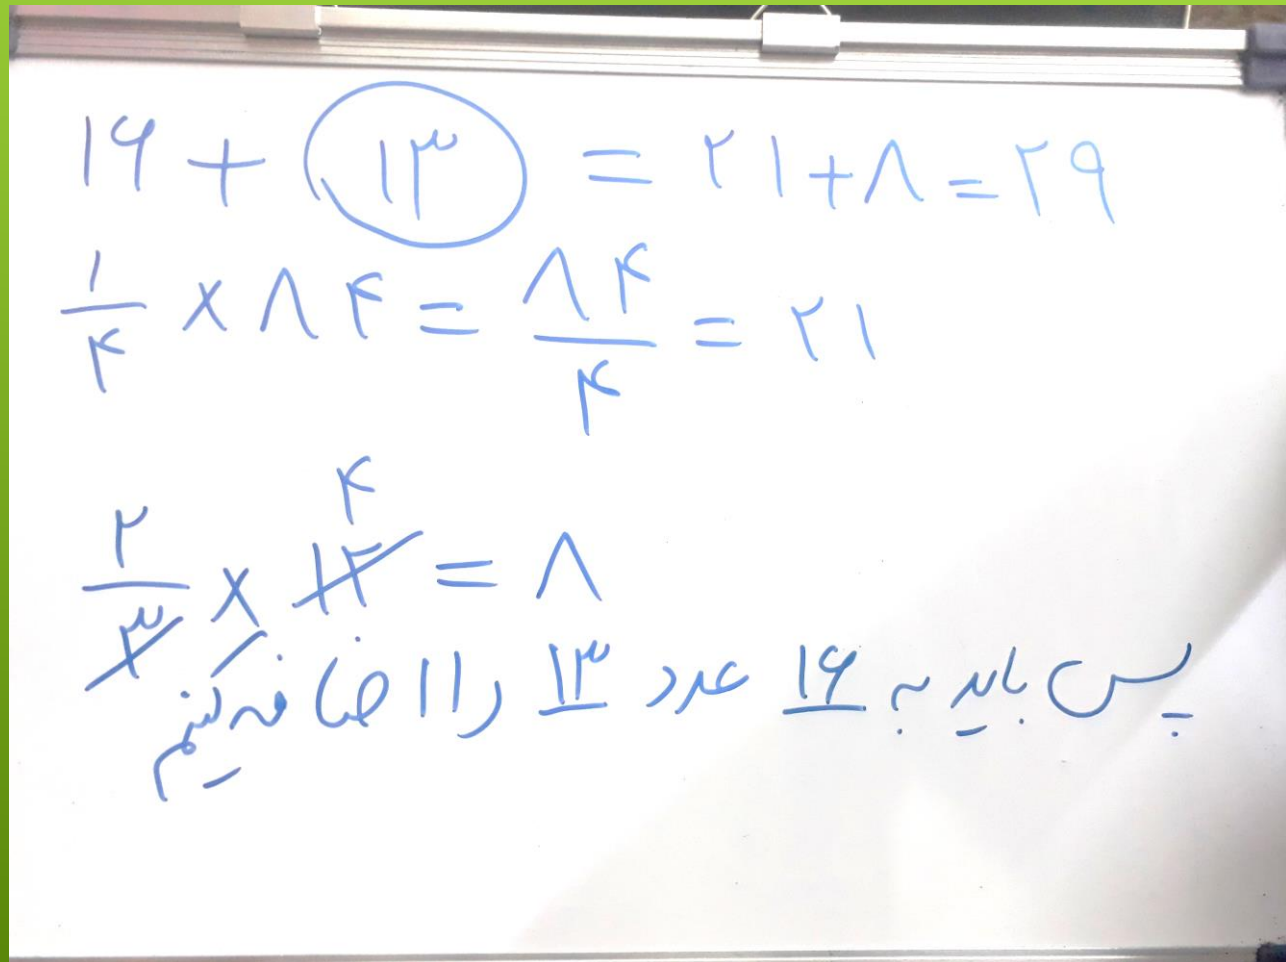 ۱۶ + ۱۳ = ۲۱ + ۸ = ۲۹
۱/۴ × ۸۴ = ۸۴/۴ = ۲۱
۴
۲/۳ × ۱۲ = ۸
پس باید به ۱۶ عدد ۱۳ را اضافه کنیم